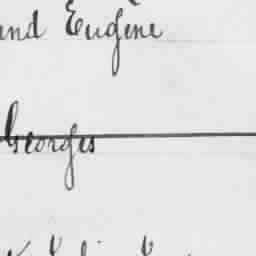 and Eugène
Georges